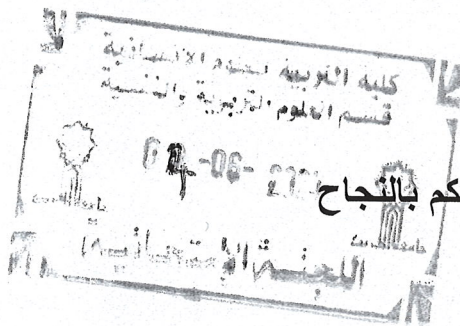 كلية التربية للعلوم الانسانية
قسم العلوم التربوية والنفسية
كم بالنجاح
اللجنة الامتحانية